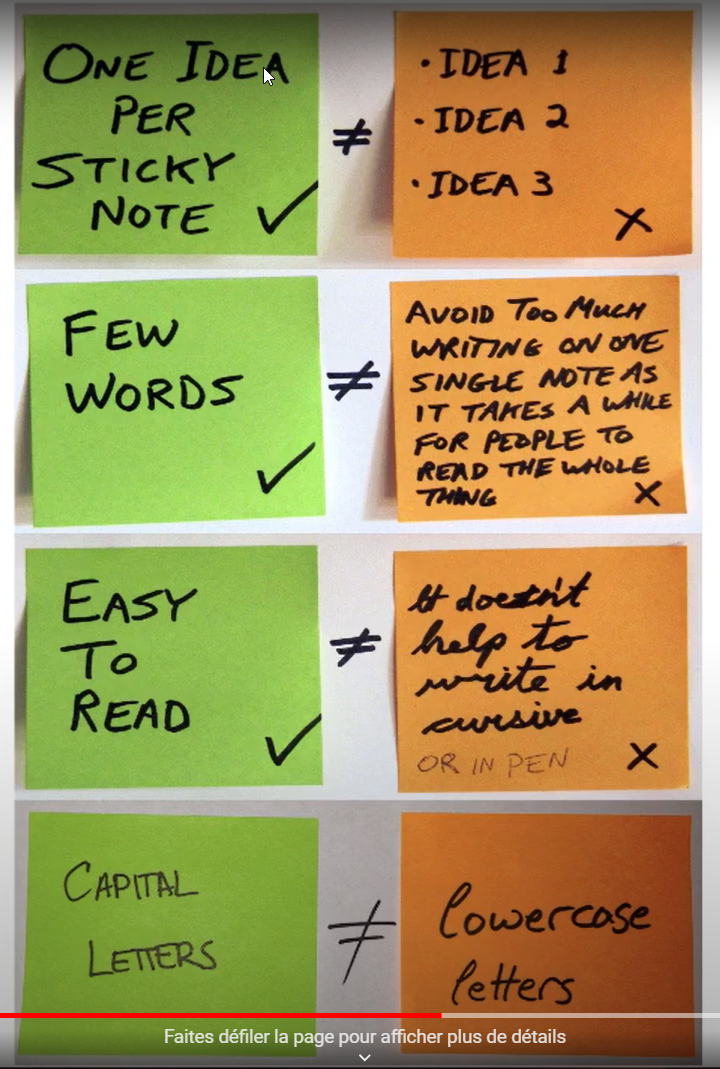 ONE IDEA
PER
STICKY
NOTE
✓
≠
• IDEA 1
• IDEA 2
• IDEA 3
X
FEW
WORDS
✓
≠
AVOID TOO MUCH
WRITING ON ONE
SINGLE NOTE AS
IT TAKES A WHILE
FOR PEOPLE TO
READ THE WHOLE
THING
X
EASY
TO
READ
✓
≠
It doesn't
help to
write in
cursive
OR IN PEN
X
CAPITAL
LETTERS
≠
lowercase
letters
Faites défiler la page pour afficher plus de détails